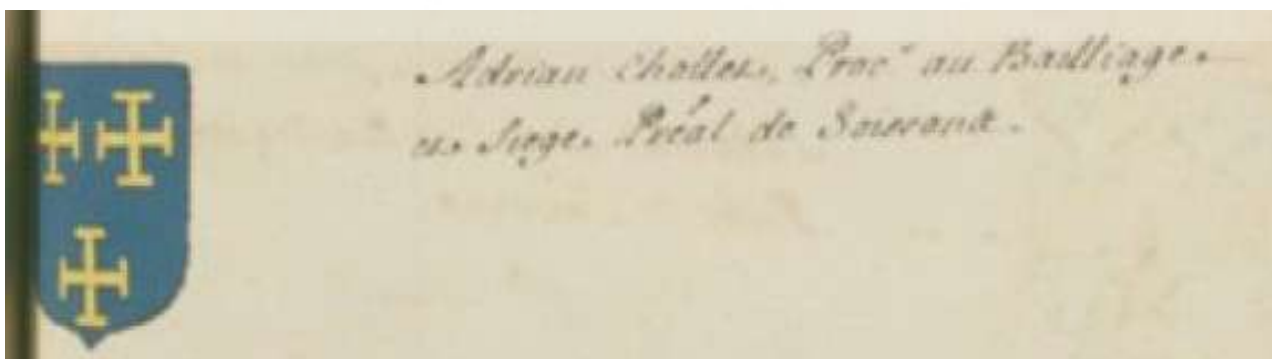 Adrian Chollet, Proc.r au Bailliage
et Siege Préal de